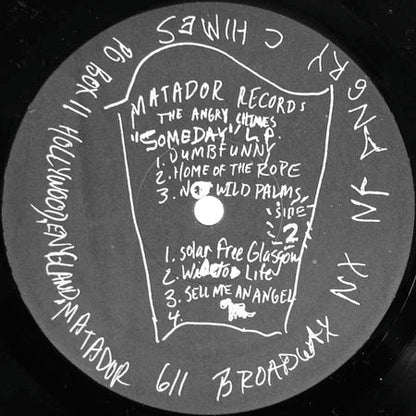 MATADOR RECORDS
THE ANGRY CHIMES
"SOMEDAY" L.P.
1. DUMBFUNNY
2. HOME OF THE ROPE
3. NOT WILD PALMS
SIDE
2
1. Solar Free Glasgow
2. Life
3. SELL ME AN ANGEL
4.
CHIMES
PO BOX 11 HOLLYWOOD, ENGLAND, MATADOR 611 BROADWAY
NY NY ANGRY